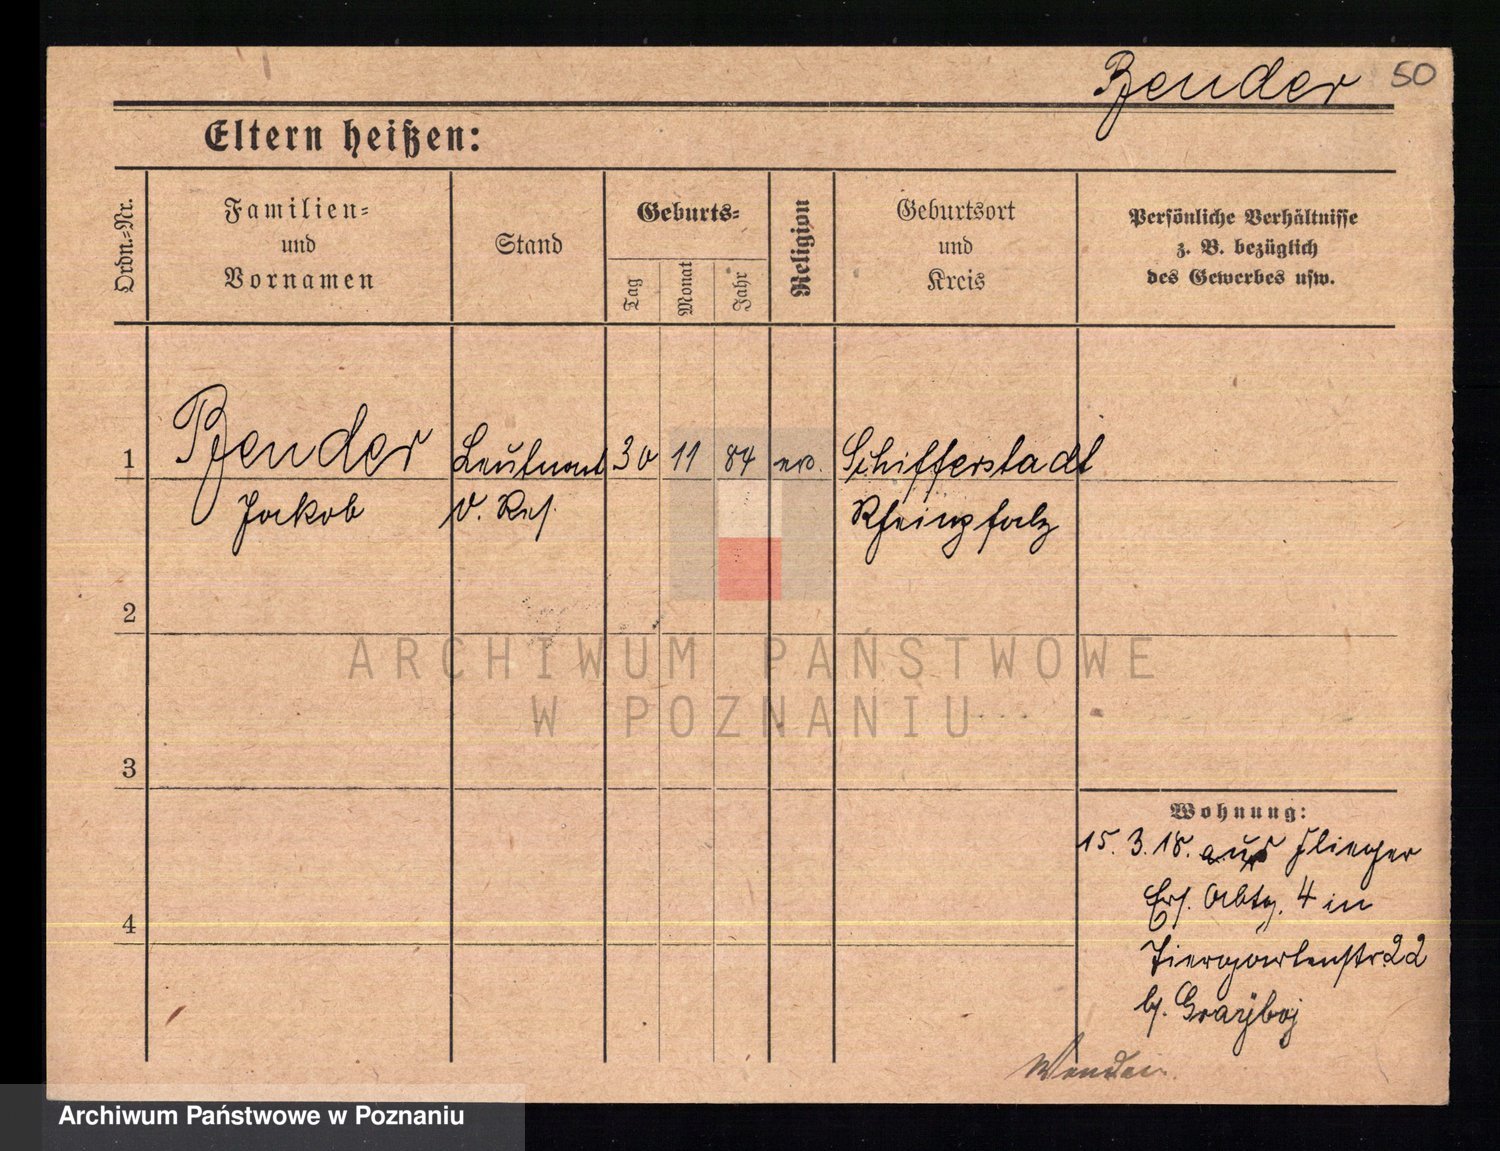 Bender 50
Eltern heißen:
Ordn.-Nr.
Familien-
und
Vornamen
Stand
Geburts-
Tag
Monat
Jahr
Religion
Geburtsort
und
Kreis
Persönliche Verhältnisse
z. B. bezüglich
des Gewerbes usw.
1 Bender Leutnant 30 11 84 Schifferstadt
Jakob d. Res. Rheinpfalz
2
3
4
Wohnung:
15. 3. 18. aus Flieger
Ers. Abtg. 4 in
Tiergartenstr 22
b.
ARCHIWUM PAŃSTWOWE
W POZNANIU
Archiwum Państwowe w Poznaniu